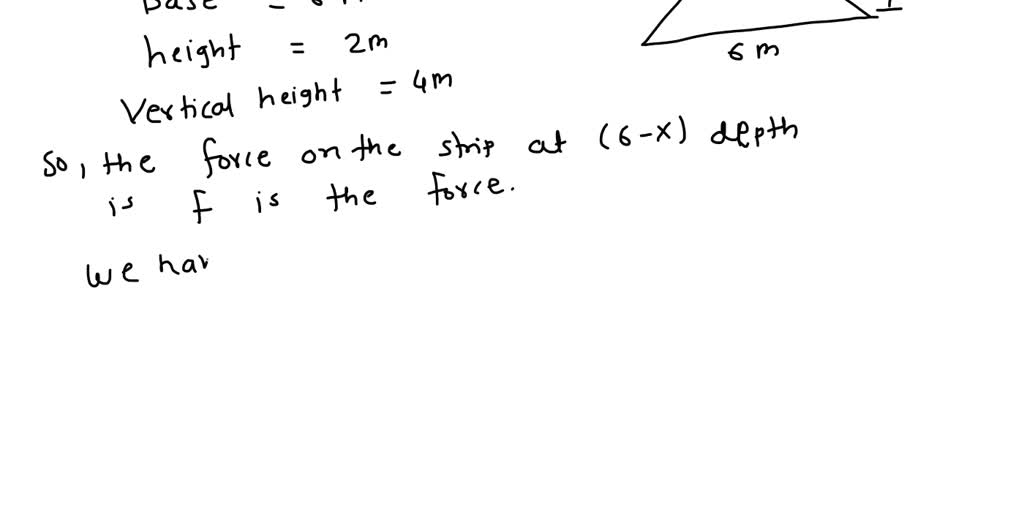 height = 2m
6 m
Vertical height = 4m
So, the force on the strip at (6-x) depth
is f is the force.
we hav